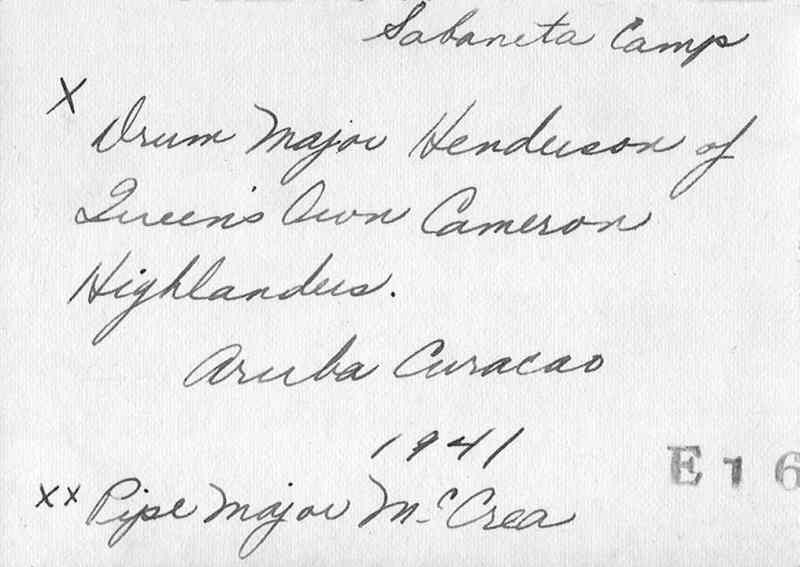 Sabaneta Camp
X
Drum Major Henderson of
Queen's Own Cameron
Highlanders.
Aruba Curacao
1941
E 1 6
xx Pipe Major McCrea